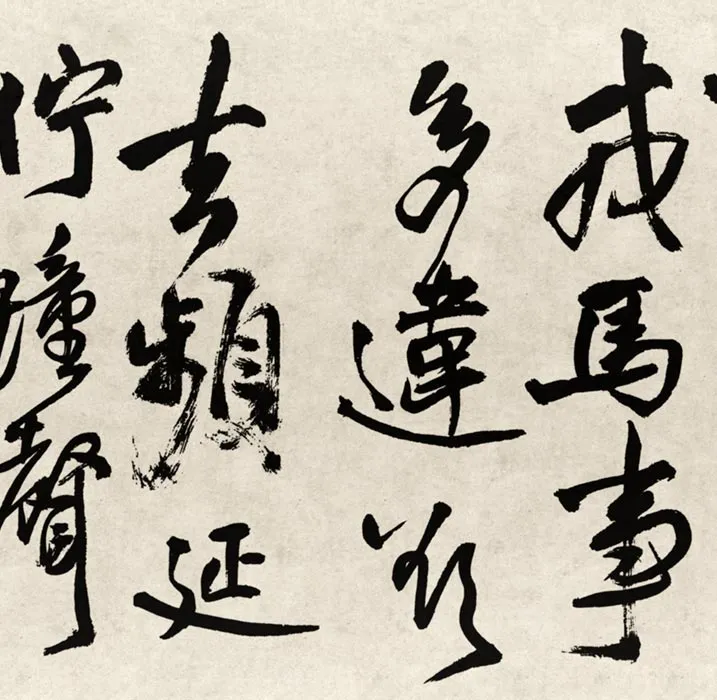 戎馬事
多違欲
去頻延
佇鐘聲